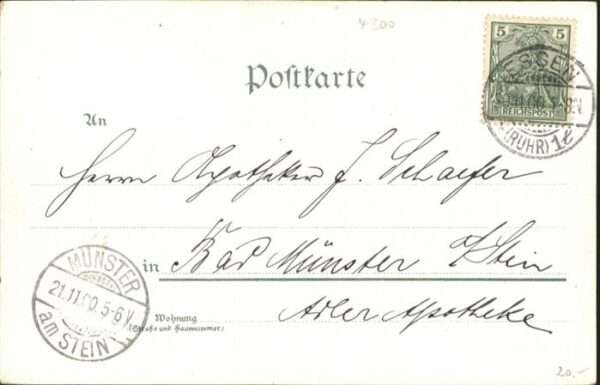 4300
5 5
REICHSPOST
ESSEN
(RUHR) 1e
Postkarte
An
Herrn Apotheker J. Schaefer
in Bad Münster a/Stein
Adler Apotheke
Wohnung
(Straße und Hausnummer)
MÜNSTER
21.11.00. 5-6V.
am STEIN
20.-